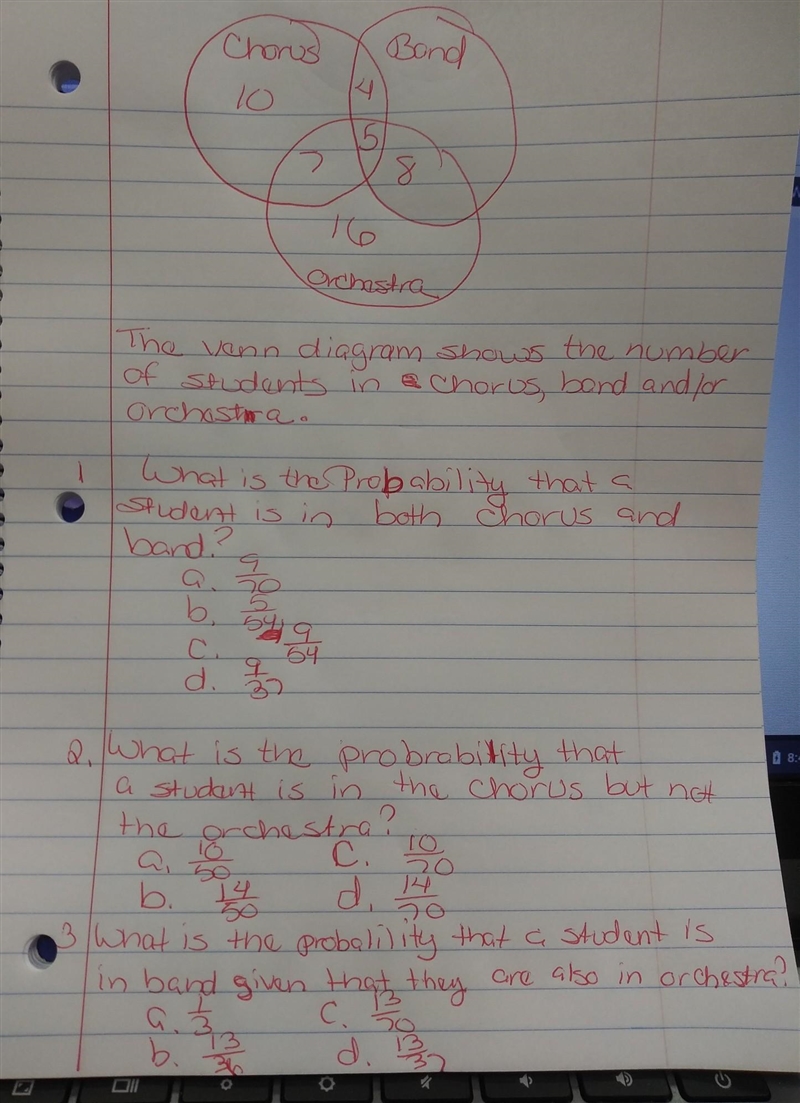 Chorus Band
10 4
5
7 8
16
Orchestra
The venn diagram shows the number
of students in chorus, band and/or
orchastra.
1 What is the Probability that a
student is in both chorus and
band?
a. 9/70
b. 5/54
c. 9/54
d. 9/37
2. What is the probrability that
a student is in the chorus but not
the orchestra?
a. 10/50 C. 10/70
b. 14/50 d. 14/70
3 What is the probalility that a student is
in band given that they are also in orchestra?
a. 1/3 c. 13/70
b. 13/36 d. 13/37